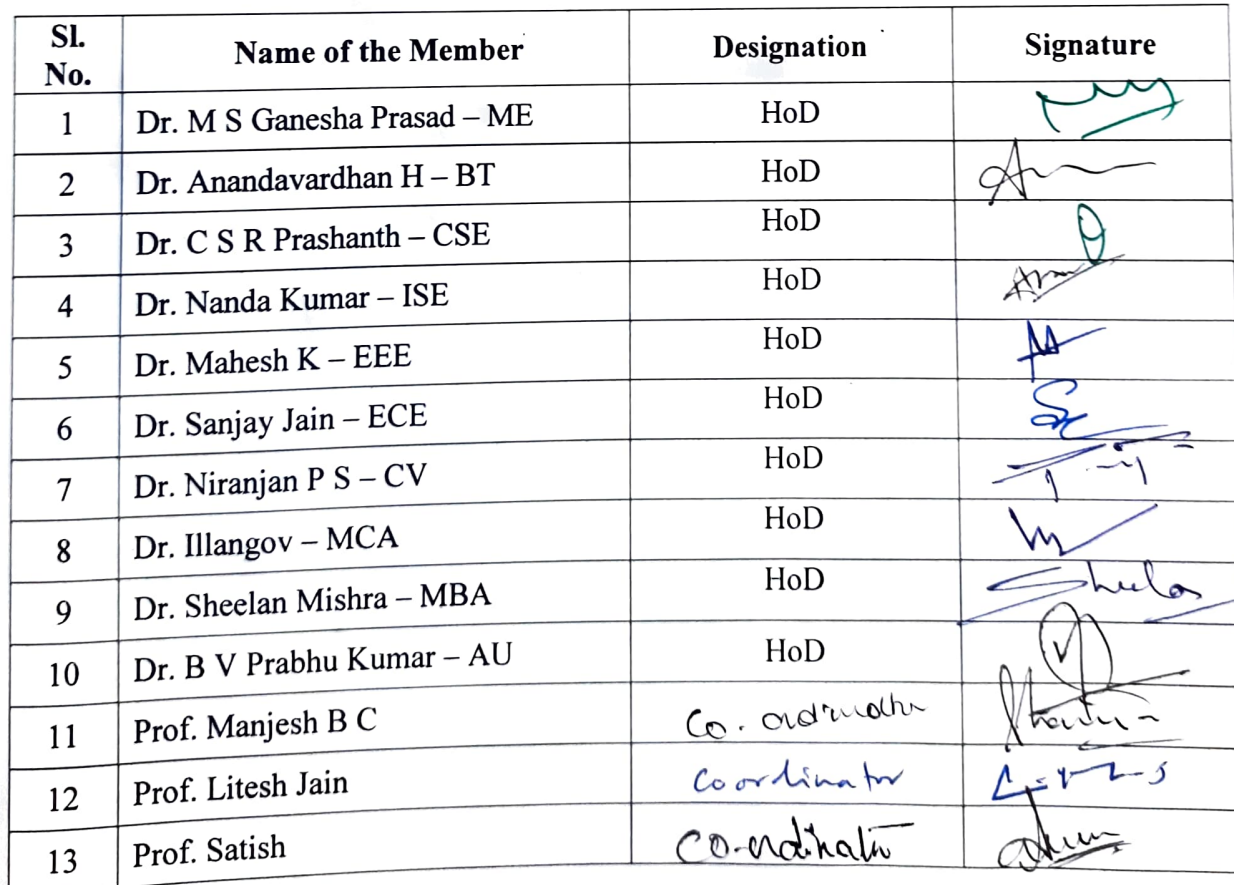 Sl. No. Name of the Member Designation Signature
1 Dr. M S Ganesha Prasad – ME HoD
2 Dr. Anandavardhan H – BT HoD
3 Dr. C S R Prashanth – CSE HoD
4 Dr. Nanda Kumar – ISE HoD
5 Dr. Mahesh K – EEE HoD
6 Dr. Sanjay Jain – ECE HoD
7 Dr. Niranjan P S – CV HoD
8 Dr. Illangov – MCA HoD
9 Dr. Sheelan Mishra – MBA HoD
10 Dr. B V Prabhu Kumar – AU HoD
11 Prof. Manjesh B C Co-ordinator
12 Prof. Litesh Jain Coordinator
13 Prof. Satish Co-ordinator